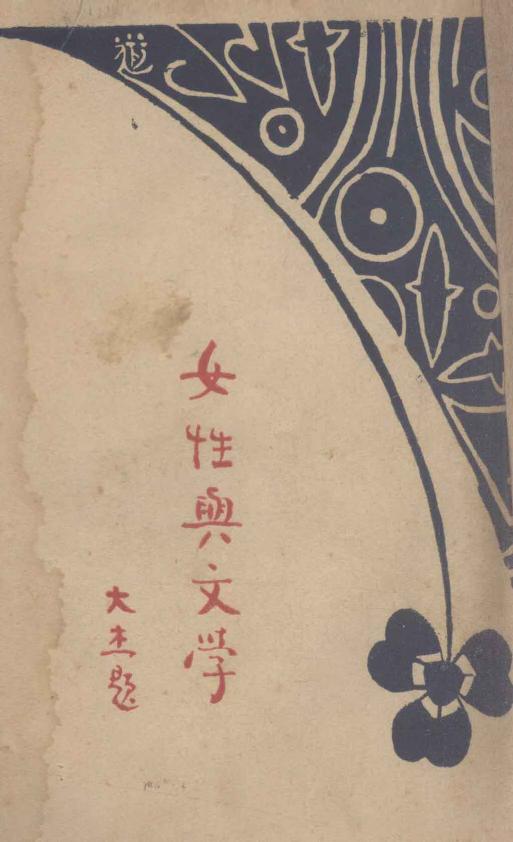 道
女性與文学
大杰題